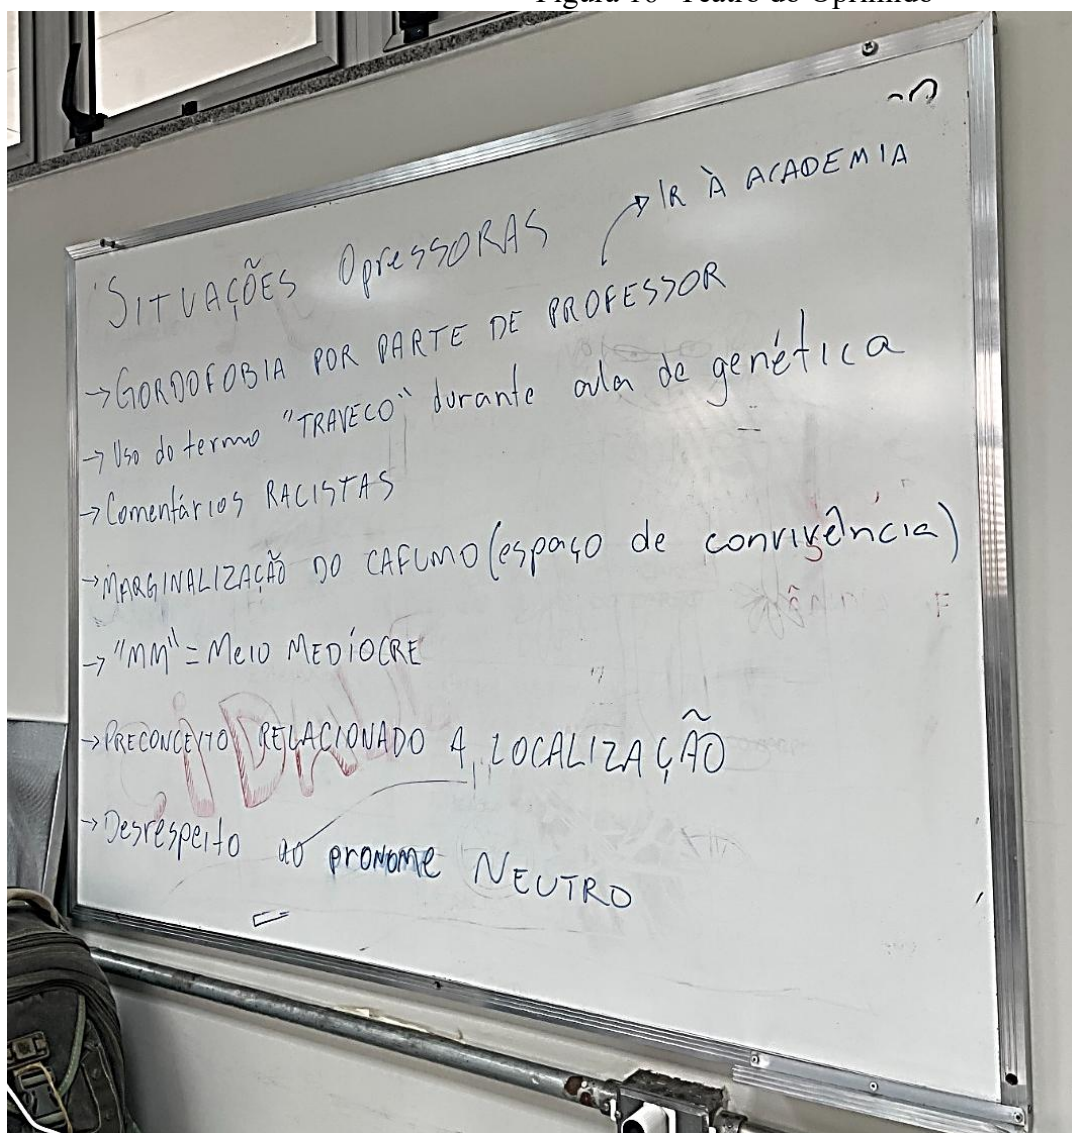 Teatro do Oprimido
IR À ACADEMIA
SITUAÇÕES OpresSORAS
→ GORDOFOBIA POR PARTE DE PROFESSOR
→ Uso do termo "TRAVECO" durante aula de genética
→ Comentários RACISTAS
→ MARGINALIZAÇÃO DO CAFUMO (espaço de convivência)
→ "MM" = Meio MEDÍOCRE
→ PRECONCEITO RELACIONADO A LOCALIZAÇÃO
→ Desrespeito ao pronome NEUTRO